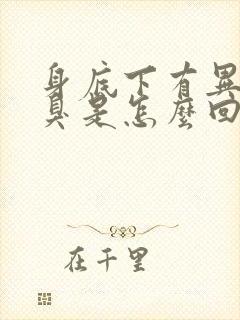 身底下有異
臭是怎麼回
在千里